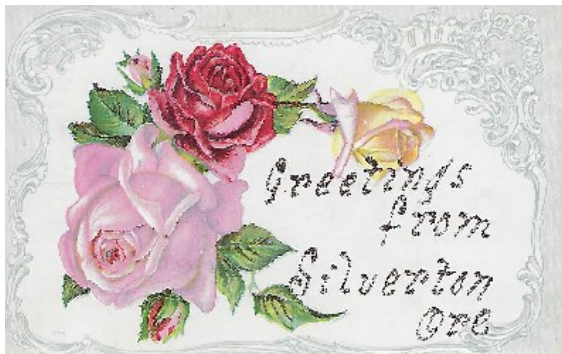 Greetings
from
Silverton
Ore